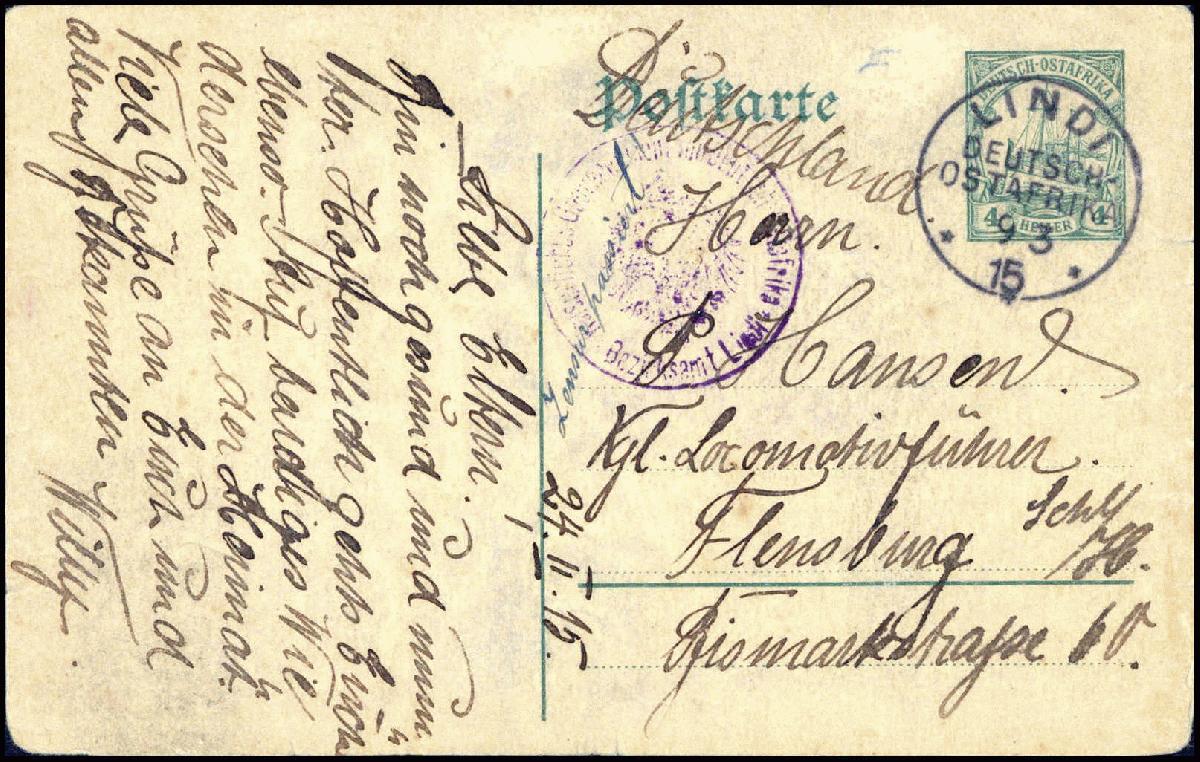 Postkarte
Deutschland.
Herrn.
P Hansen.
Kgl. Locomotivführer.
Flensburg Schl
/H.
Bismarkstrasse 60.
DEUTSCH-OSTAFRIKA
4 HELLER 4
LINDI
DEUTSCH-
OSTAFRIKA
9 3
15
Bezirksamt Lindi
24.II.15.
Liebe Eltern!
Bin noch gesund und mun-
ter. Hoffentlich gehts Euch
ebenso. Auf baldiges Wie-
dersehen in der Heimat.
Viele Grüße an Euch und
allen Bekannten Willy.